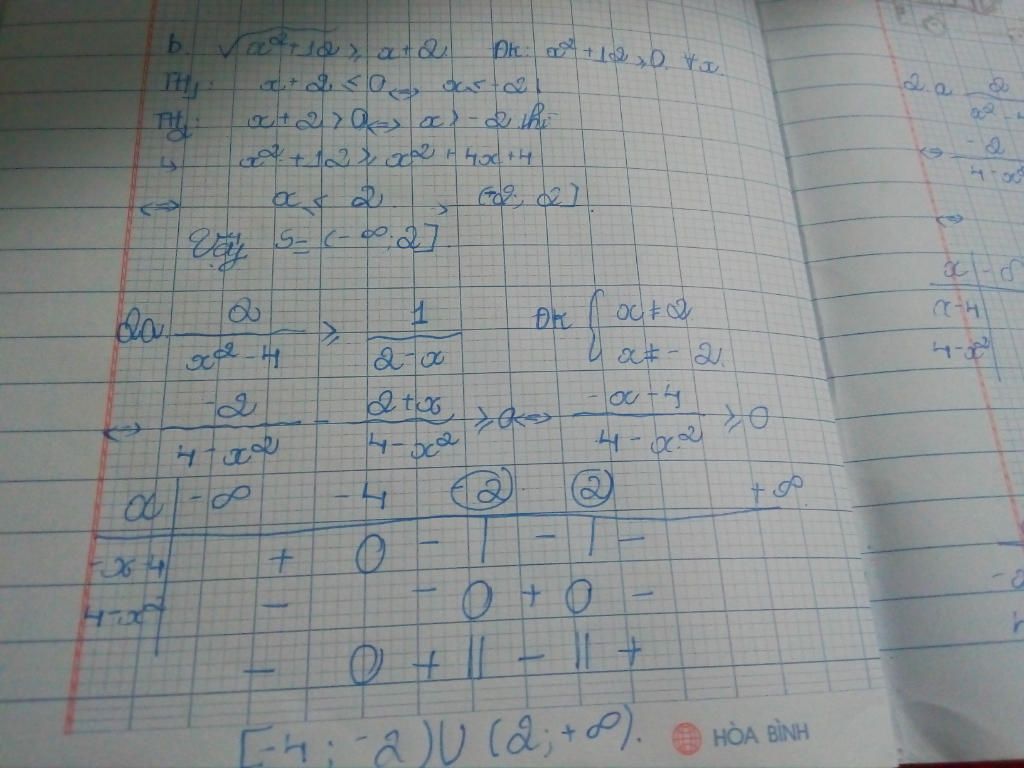 b. √x²+12 ≥ x+2 ĐK: x²+12 ≥ 0 ∀x.
TH1: x+2 ≤ 0 ⇔ x ≤ -2
TH2: x+2 > 0 ⇔ x > -2
x²+12 ≥ x²+4x+4
⇔ x ≤ 2 (-2; 2].
Vậy S= (-∞; 2].
2a 2/(x²-4) ≥ 1/(2-x) ĐK { x ≠ 2
x ≠ -2
⇔ -2/(4-x²) - (2+x)/(4-x²) ≥ 0 ⇔ (-x-4)/(4-x²) ≥ 0
x | -∞ -4 -2 2 +∞
-x-4 | + 0 - | - | -
4-x² | - - 0 + 0 -
- 0 + || - || +
[-4; -2) ∪ (2; +∞).
HÒA BÌNH
2.a 2
x²-4
⇔ -2
4-x²
⇔
x | -∞
x-4
4-x²